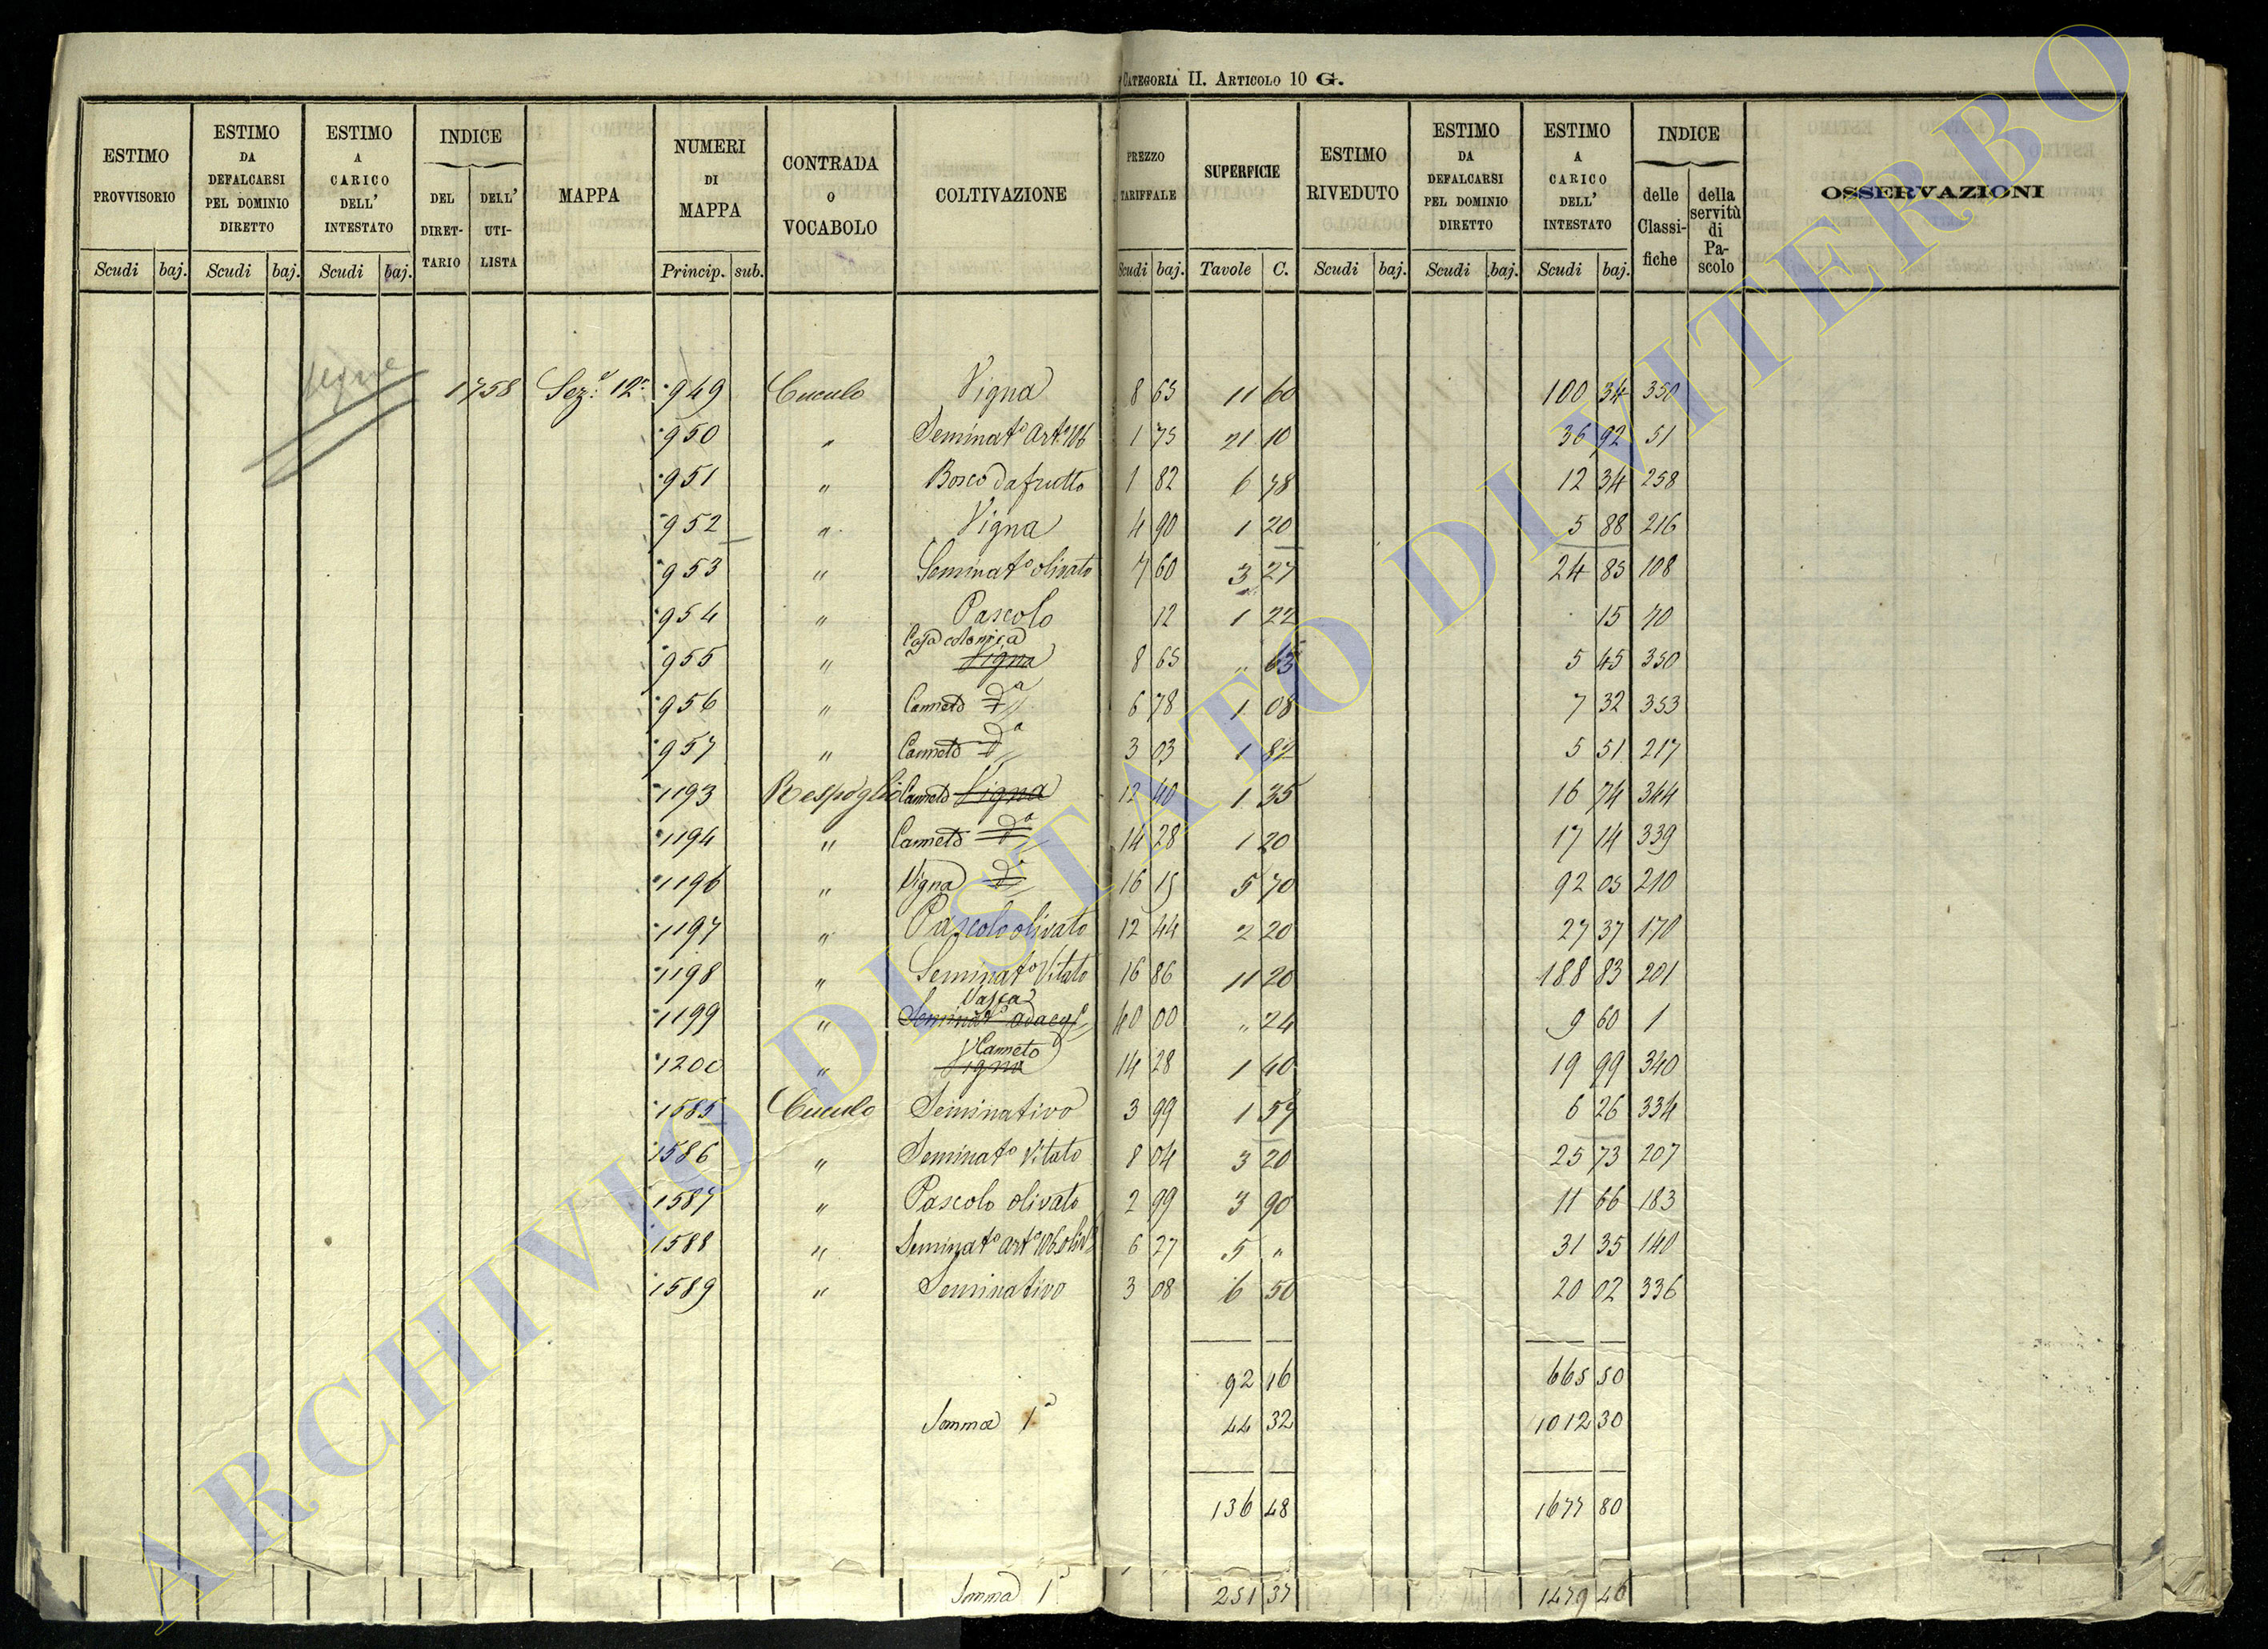 CATEGORIA II. ARTICOLO 10 G.
ESTIMO PROVVISORIO
ESTIMO DA DEFALCARSI PEL DOMINIO DIRETTO
ESTIMO A CARICO DELL' INTESTATO
INDICE
DEL DIRET-TARIO
DELL' UTI-LISTA
MAPPA
NUMERI DI MAPPA
CONTRADA o VOCABOLO
COLTIVAZIONE
PREZZO TARIFFALE
SUPERFICIE
ESTIMO RIVEDUTO
ESTIMO DA DEFALCARSI PEL DOMINIO DIRETTO
ESTIMO A CARICO DELL' INTESTATO
INDICE
delle Classi-fiche
della servitù di Pa-scolo
OSSERVAZIONI
Scudi baj. Scudi baj. Scudi baj. Princip. sub. Scudi baj. Tavole C. Scudi baj. Scudi baj. Scudi baj.
segue
1758 Sez.e 12a 949 Cuculo Vigna 8 65 11 60 100 34 350
950 " Seminat.o Art.o 106 1 75 21 10 36 92 51
951 " Bosco da frutto 1 82 6 78 12 34 258
952 " Vigna 4 90 1 20 5 88 216
953 " Seminat.o olivato 7 60 3 27 24 85 108
954 " Pascolo 12 1 22 15 70
Casa colonica
955 " Vigna 8 65 " 63 5 45 350
956 " Canneto d.a 6 78 1 08 7 32 353
957 " Canneto d.a 3 03 1 82 5 51 217
1193 Respoglio Canneto Vigna 12 40 1 35 16 74 344
1194 " Canneto d.a 14 28 1 20 17 14 339
1196 " Vigna d.a 16 15 5 70 92 05 210
1197 " Pascolo olivato 12 44 2 20 27 37 170
1198 " Seminat.o Vitato 16 86 11 20 188 83 201
Vasca
1199 " Seminat.o ad acq.a 40 00 " 24 9 60 1
Canneto
1200 " Vigna 14 28 1 40 19 99 340
1585 Cuculo Seminativo 3 99 1 57 6 26 334
1586 " Seminat.o Vitato 8 04 3 20 25 73 207
1587 " Pascolo olivato 2 99 3 90 11 66 183
1588 " Seminat.o Art.o 106 oliv.o 6 27 5 " 31 35 140
1589 " Seminativo 3 08 6 50 20 02 336
92 16 665 50
Somma 1a 44 32 1012 30
136 48 1677 80
Somma 1a 251 37 1479 46
ARCHIVIO DI STATO DI VITERBO